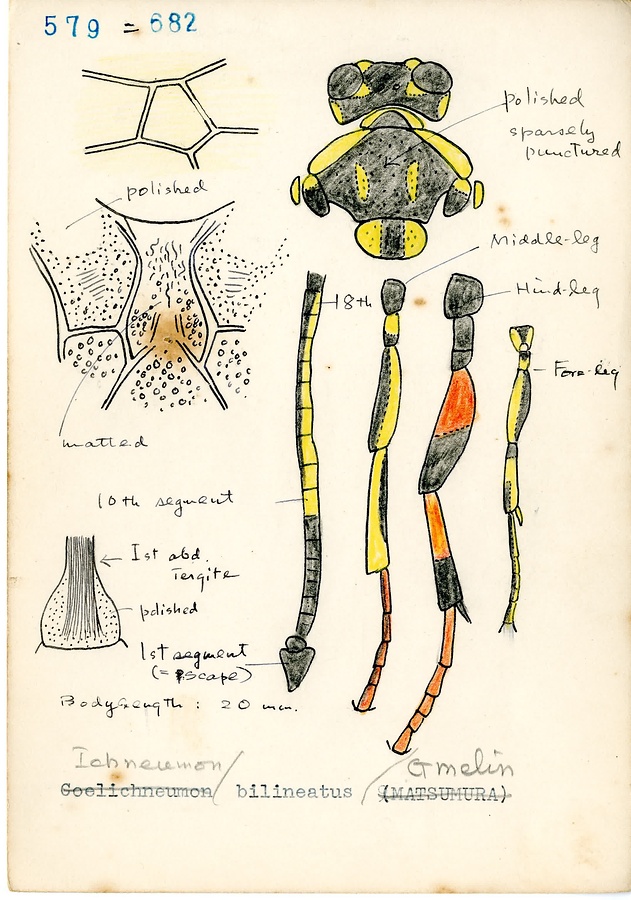 579 = 682
polished
sparsely
punctured
polished
Middle-leg
Hind-leg
18th
Fore-leg
matted
10th segment
1st abd.
Tergite
polished
1st segment
(= scape)
Body length : 20 mm.
Ichneumon/ /Gmelin
Goelichneumon bilineatus (MATSUMURA)